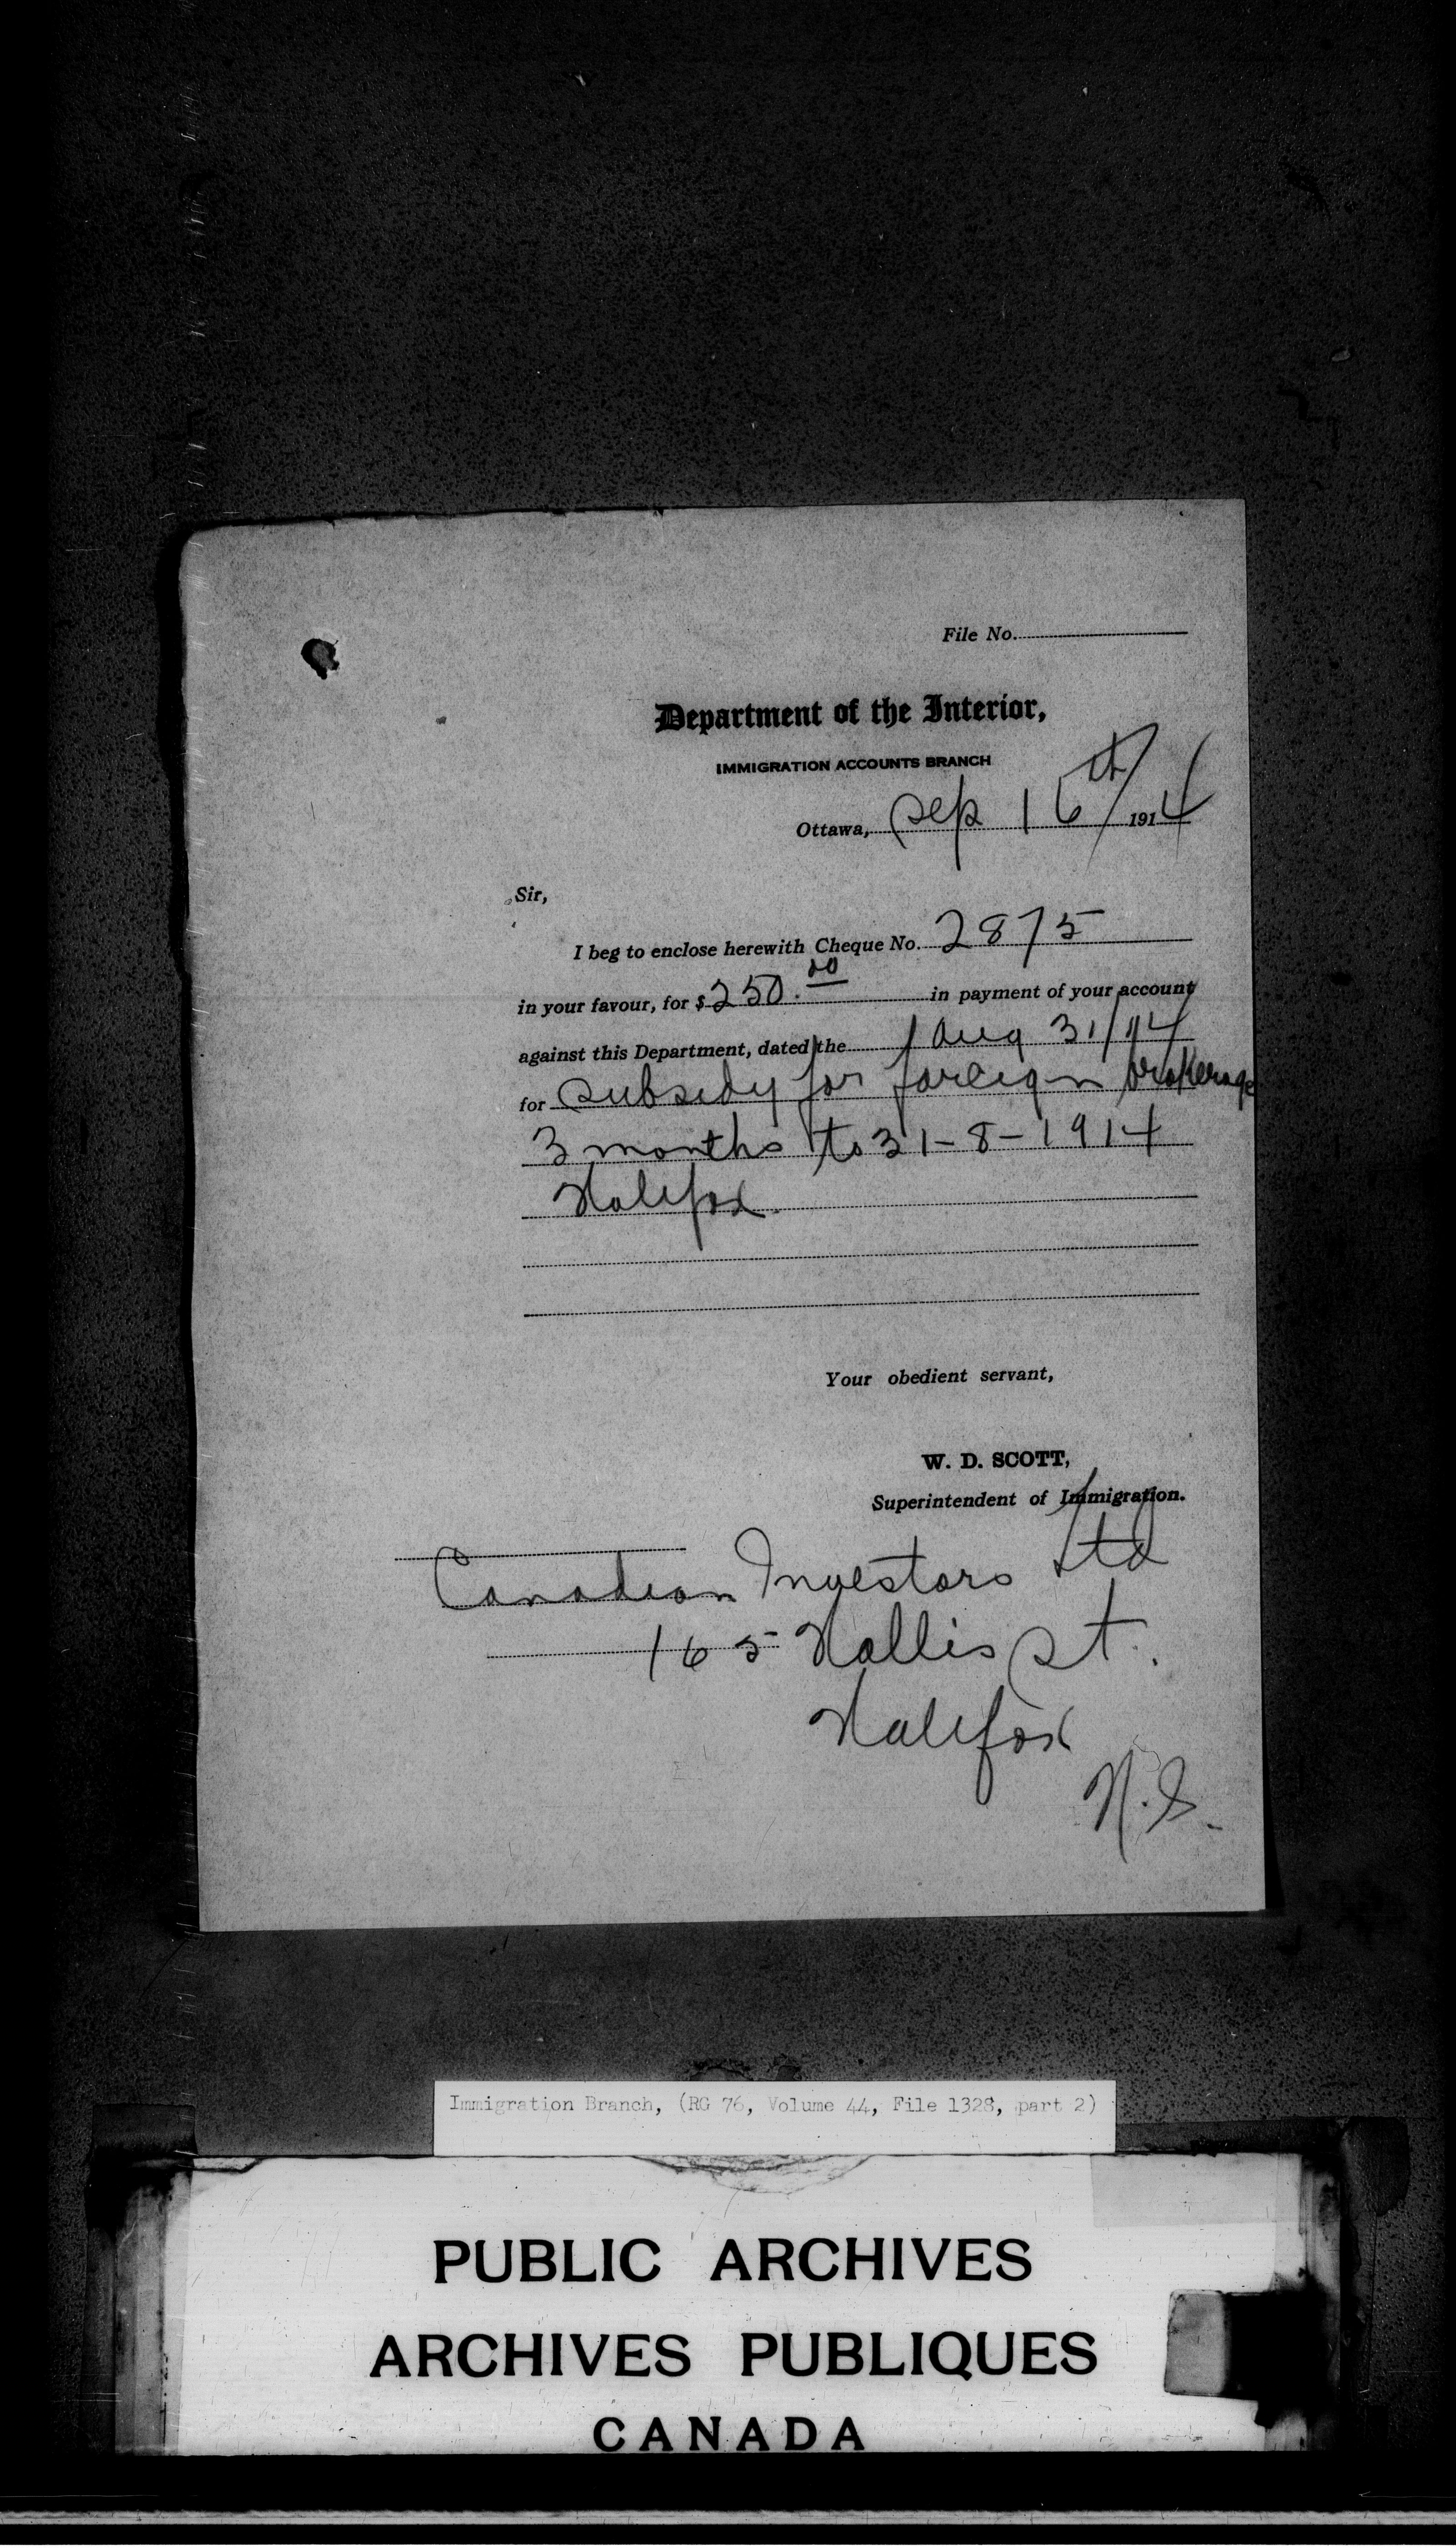 File No.
Department of the Interior,
IMMIGRATION ACCOUNTS BRANCH
Ottawa, Sep 16th/ 1914
Sir,
I beg to enclose herewith Cheque No. 2875
in your favour, for $ 250.00 in payment of your account
against this Department, dated the Aug 31/14
for Subsidy for foreign brokerage
3 months to 31-8-1914
Halifax.
Your obedient servant,
W. D. SCOTT,
Superintendent of Immigration.
Canadian Investors Ltd
165 Hollis St.
Halifax
N.S.
Immigration Branch, (RG 76, Volume 44, File 1328, part 2)
PUBLIC ARCHIVES
ARCHIVES PUBLIQUES
CANADA